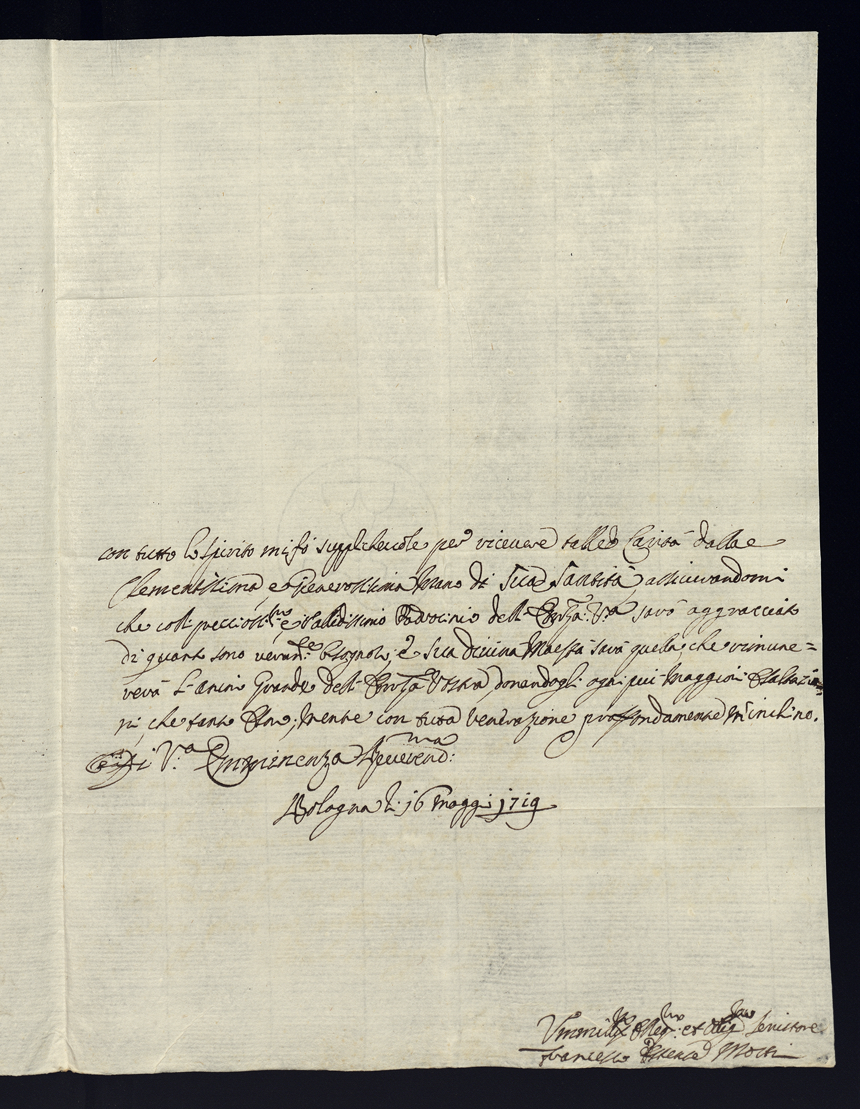 con tutto lo spirito mi fò supplicheuole per riceuere talled Carità dalla
Clementissima, e Generosissima Mano di Sua Santità, assicurandomi
che coll e Validissimo Padrocinio dell' Emza: Vra sarò aggracciato
di quant sono verante bisognoso, è Sua Diuina Maestà sarà quella, che rimune=
rerà l'anim Grande dell' Emza Vostra donandogli ogni più Maggiori Esaltazio=
ni, che tanto Mentre con tutta Venerazione profondamente M'inchino.
Di V.a Emminenza Reuerend:ma
Bologna li 16 Maggi 1719
Vmmilis et Seruitore
Francesco